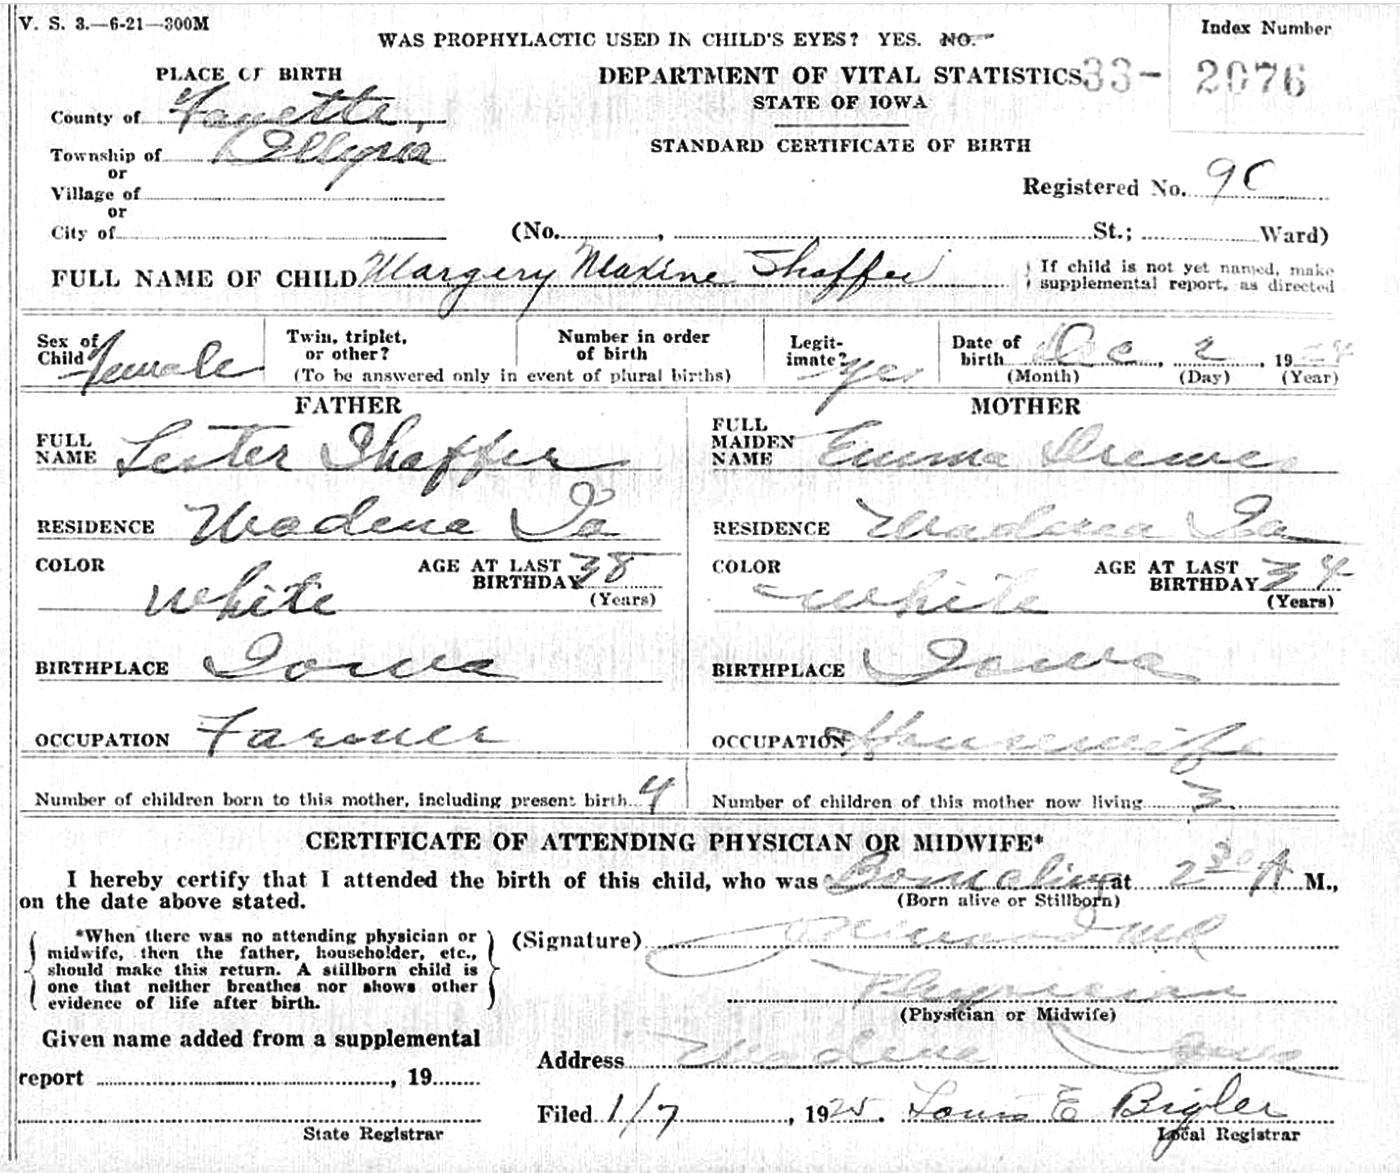 V. S. 3.—6-21—300M
WAS PROPHYLACTIC USED IN CHILD'S EYES? YES. NO.
Index Number
33- 2076
PLACE OF BIRTH
DEPARTMENT OF VITAL STATISTICS
STATE OF IOWA
STANDARD CERTIFICATE OF BIRTH
County of Fayette,
Township of Illyria
or
Village of
or
City of
Registered No. 90
(No. , St.; Ward)
FULL NAME OF CHILD Margery Maxine Shaffer
If child is not yet named, make
supplemental report, as directed
Sex of
Child Female
Twin, triplet,
or other?
Number in order
of birth
(To be answered only in event of plural births)
Legit-
imate? yes
Date of
birth Dec, 2, 1924
(Month) (Day) (Year)
FATHER
FULL
NAME Lester Shaffer
RESIDENCE Wadena Ia
COLOR White
AGE AT LAST
BIRTHDAY 38
(Years)
BIRTHPLACE Iowa
OCCUPATION Farmer
MOTHER
FULL
MAIDEN
NAME Emma Drewes
RESIDENCE Wadena Ia
COLOR White
AGE AT LAST
BIRTHDAY 34
(Years)
BIRTHPLACE Iowa
OCCUPATION Housewife
Number of children born to this mother, including present birth 4
Number of children of this mother now living 3
CERTIFICATE OF ATTENDING PHYSICIAN OR MIDWIFE*
I hereby certify that I attended the birth of this child, who was Born alive at 2 30 A M.,
(Born alive or Stillborn)
on the date above stated.
*When there was no attending physician or
midwife, then the father, householder, etc.,
should make this return. A stillborn child is
one that neither breathes nor shows other
evidence of life after birth.
(Signature) MD
Physician
(Physician or Midwife)
Given name added from a supplemental
report , 19
State Registrar
Address Wadena Iowa
Filed 1/7, 1925. Louis E Bigler
Local Registrar